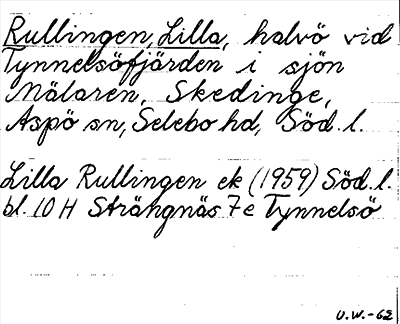 Rullingen, Lilla, halvö vid
Tynnelsöfjärden i sjön
Mälaren, Skedinge,
Aspö sn, Selebo hd, Söd. l.
Lilla Rullingen ek (1959) Söd. l.
bl. 10 H Strängnäs 7e Tynnelsö
U.W.-62